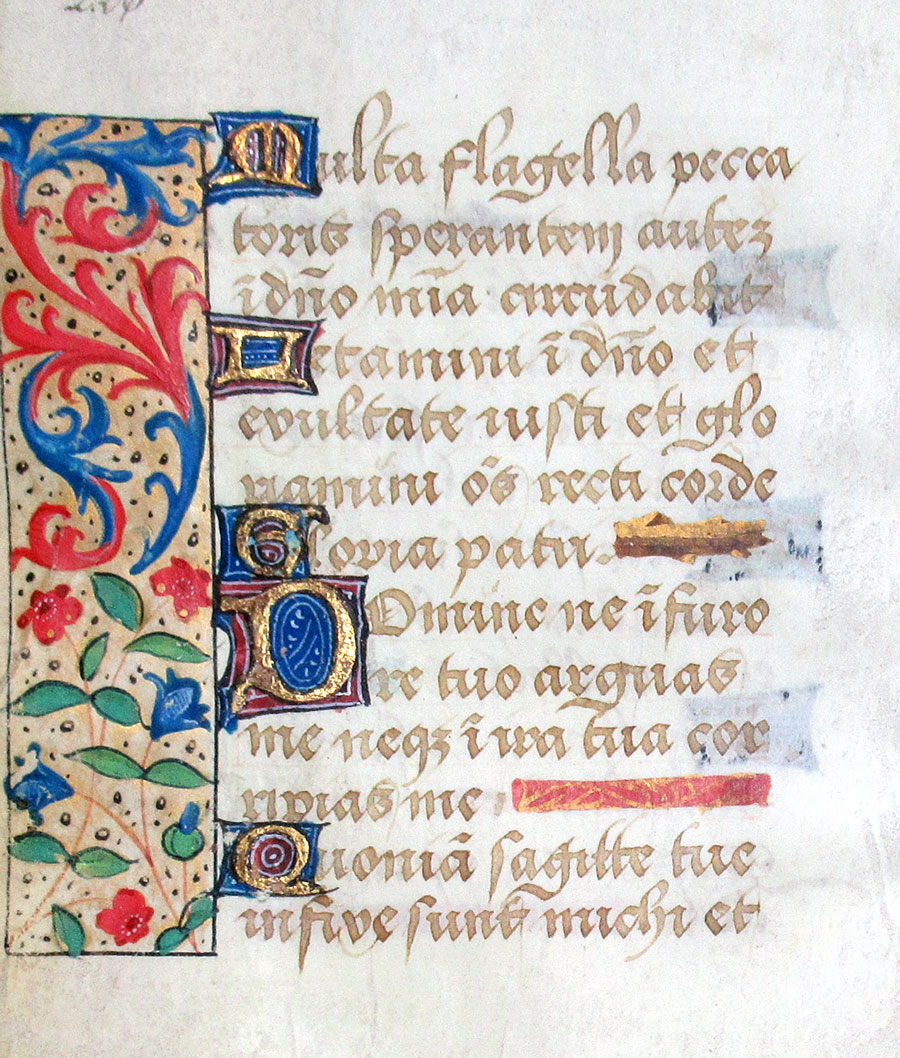 Multa flagella pecca
toris sperantem autez
ī dn̄o mīa circūdabit
Letamini ī dn̄o et
exultate iusti et glo
riamini om̄s recti corde
Gloria patri.
Domine ne ī furo
re tuo arguas
me neqz ī ira tua cor
ripias me
Quoniā sagitte tue
infixe sunt michi et